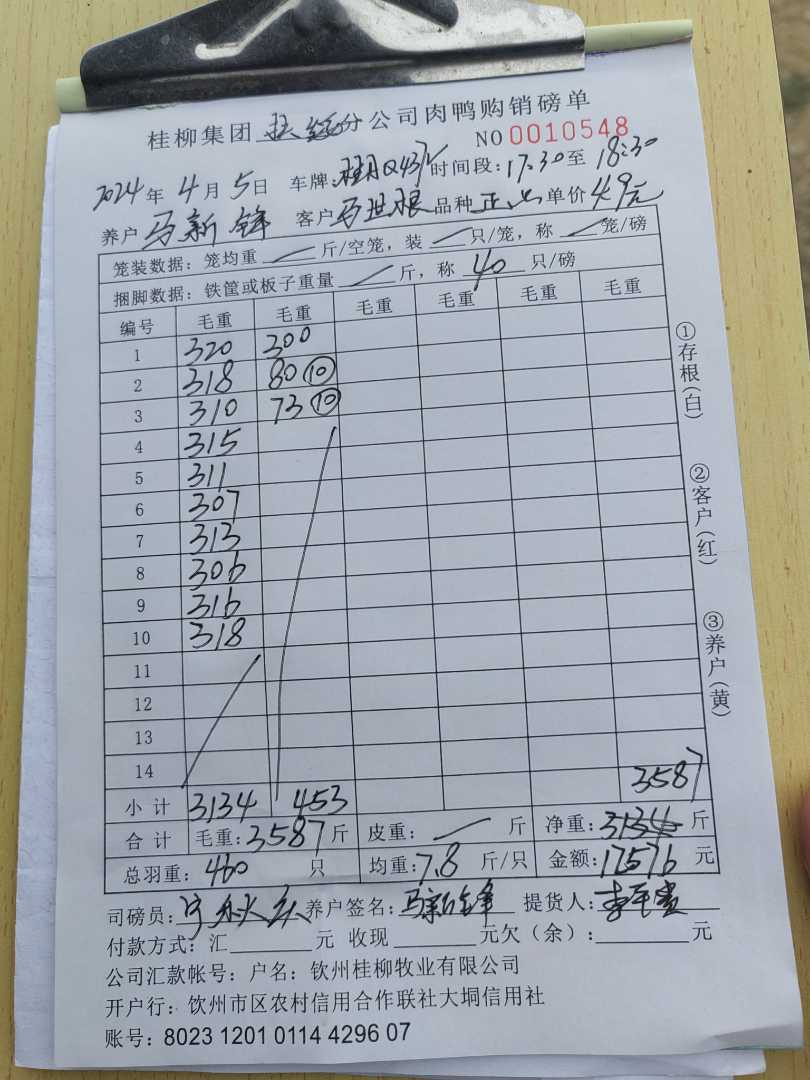 桂柳集团 分公司肉鸭购销磅单
NO 0010548
2024年4月5日 车牌: 时间段:17:30至18:30
养户 马新锋 客户 马世根 品种 正 单价 4.9元
笼装数据:笼均重 / 斤/空笼,装 / 只/笼,称 / 笼/磅
捆脚数据:铁筐或板子重量 / 斤,称 40 只/磅
编号 毛重 毛重 毛重 毛重 毛重 毛重
1 320 300
2 318 80⑩
3 310 73⑩
4 315
5 311
6 307
7 313
8 306
9 316
10 318
11
12
13
14 3587
小计 3134 453
合计 毛重:3587斤 皮重: / 斤 净重:3134斤
总羽重:460只 均重:7.8斤/只 金额:17576元
司磅员: 养户签名:马新锋 提货人:
付款方式:汇 元 收现 元欠(余): 元
公司汇款帐号:户名:钦州桂柳牧业有限公司
开户行:饮州市区农村信用合作联社大垌信用社
账号:8023 1201 0114 4296 07
①存根(白)
②客户(红)
③养户(黄)